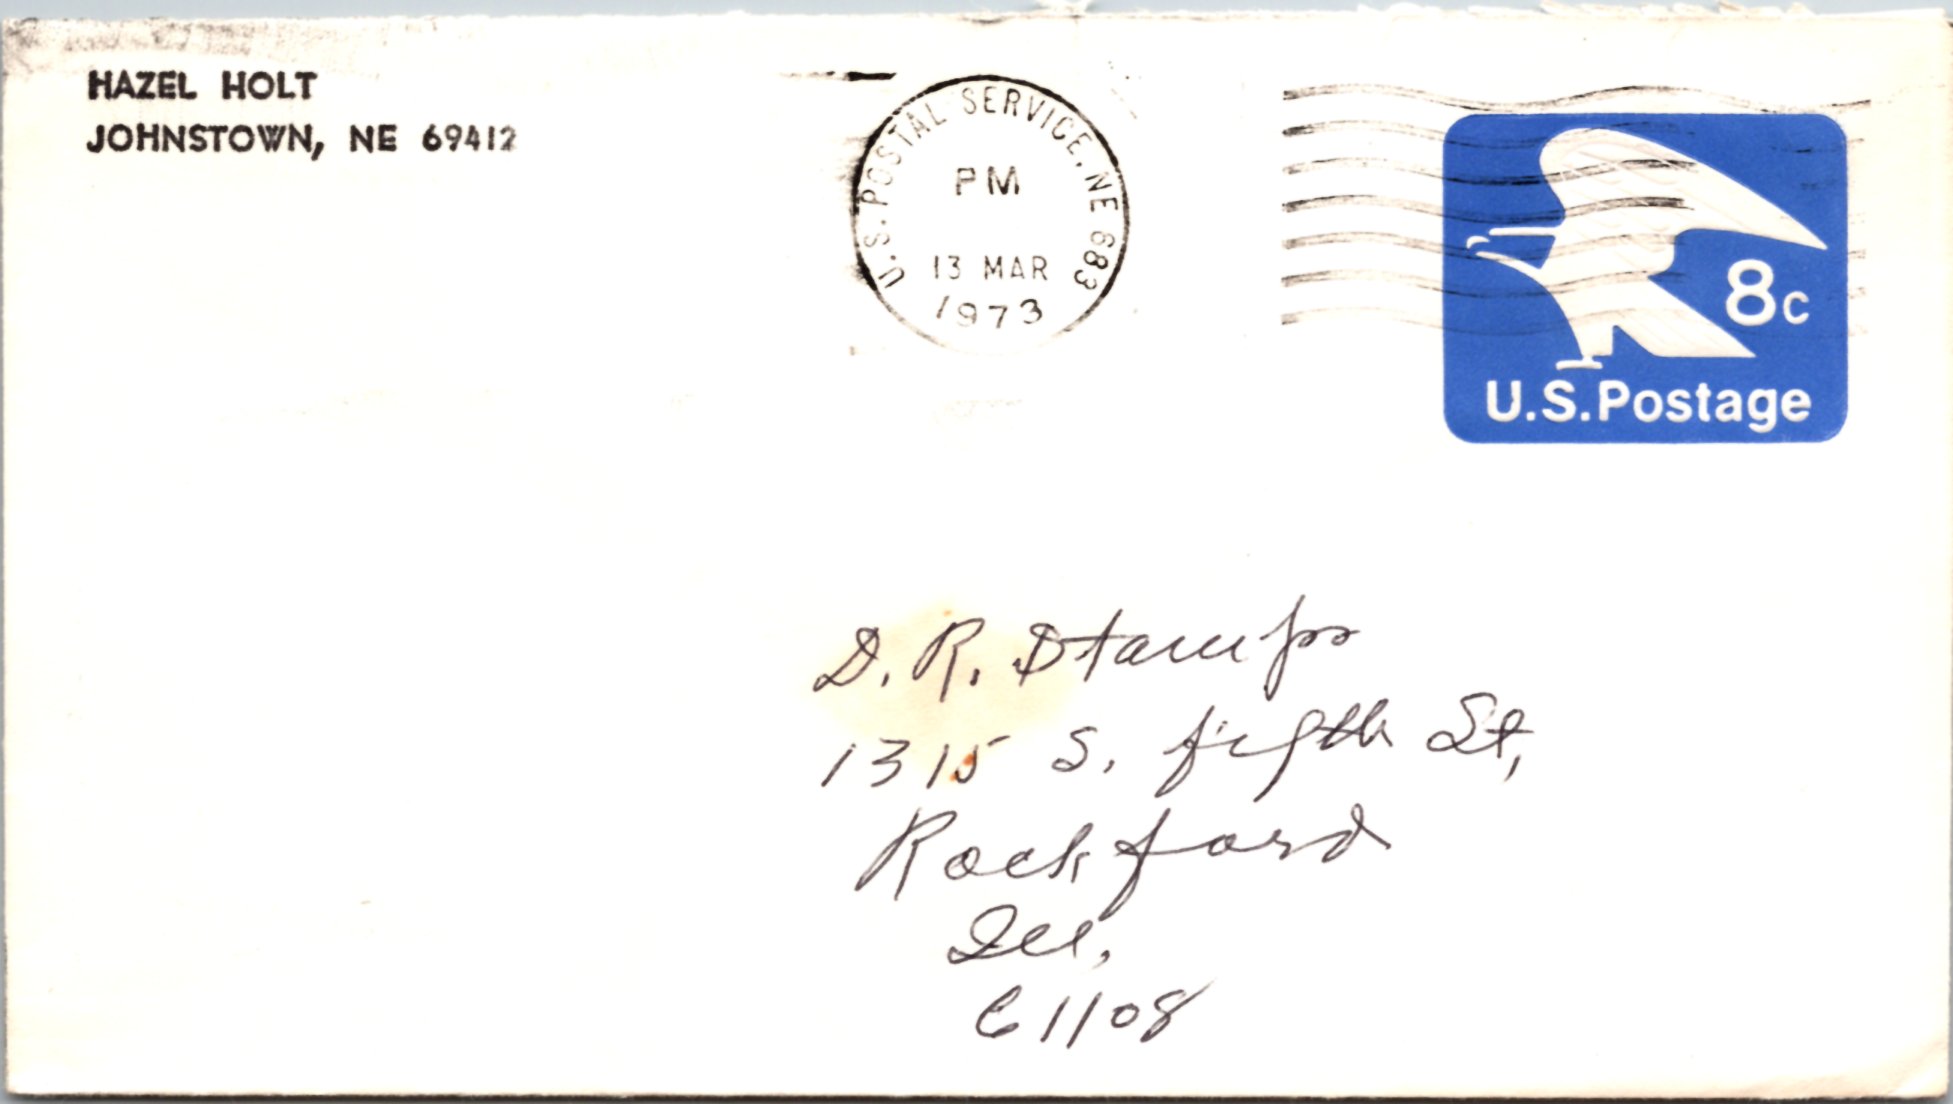 HAZEL HOLT
JOHNSTOWN, NE 69412
U.S. POSTAL SERVICE, NE 683
PM
13 MAR
1973
8c
U.S. Postage
D. R. Stamps
1315 S. fifth St,
Rockford
Ill.
61108